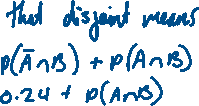 that disjoint means
P(A̅∩B) + P(A∩B)
0.24 + P(A∩B)